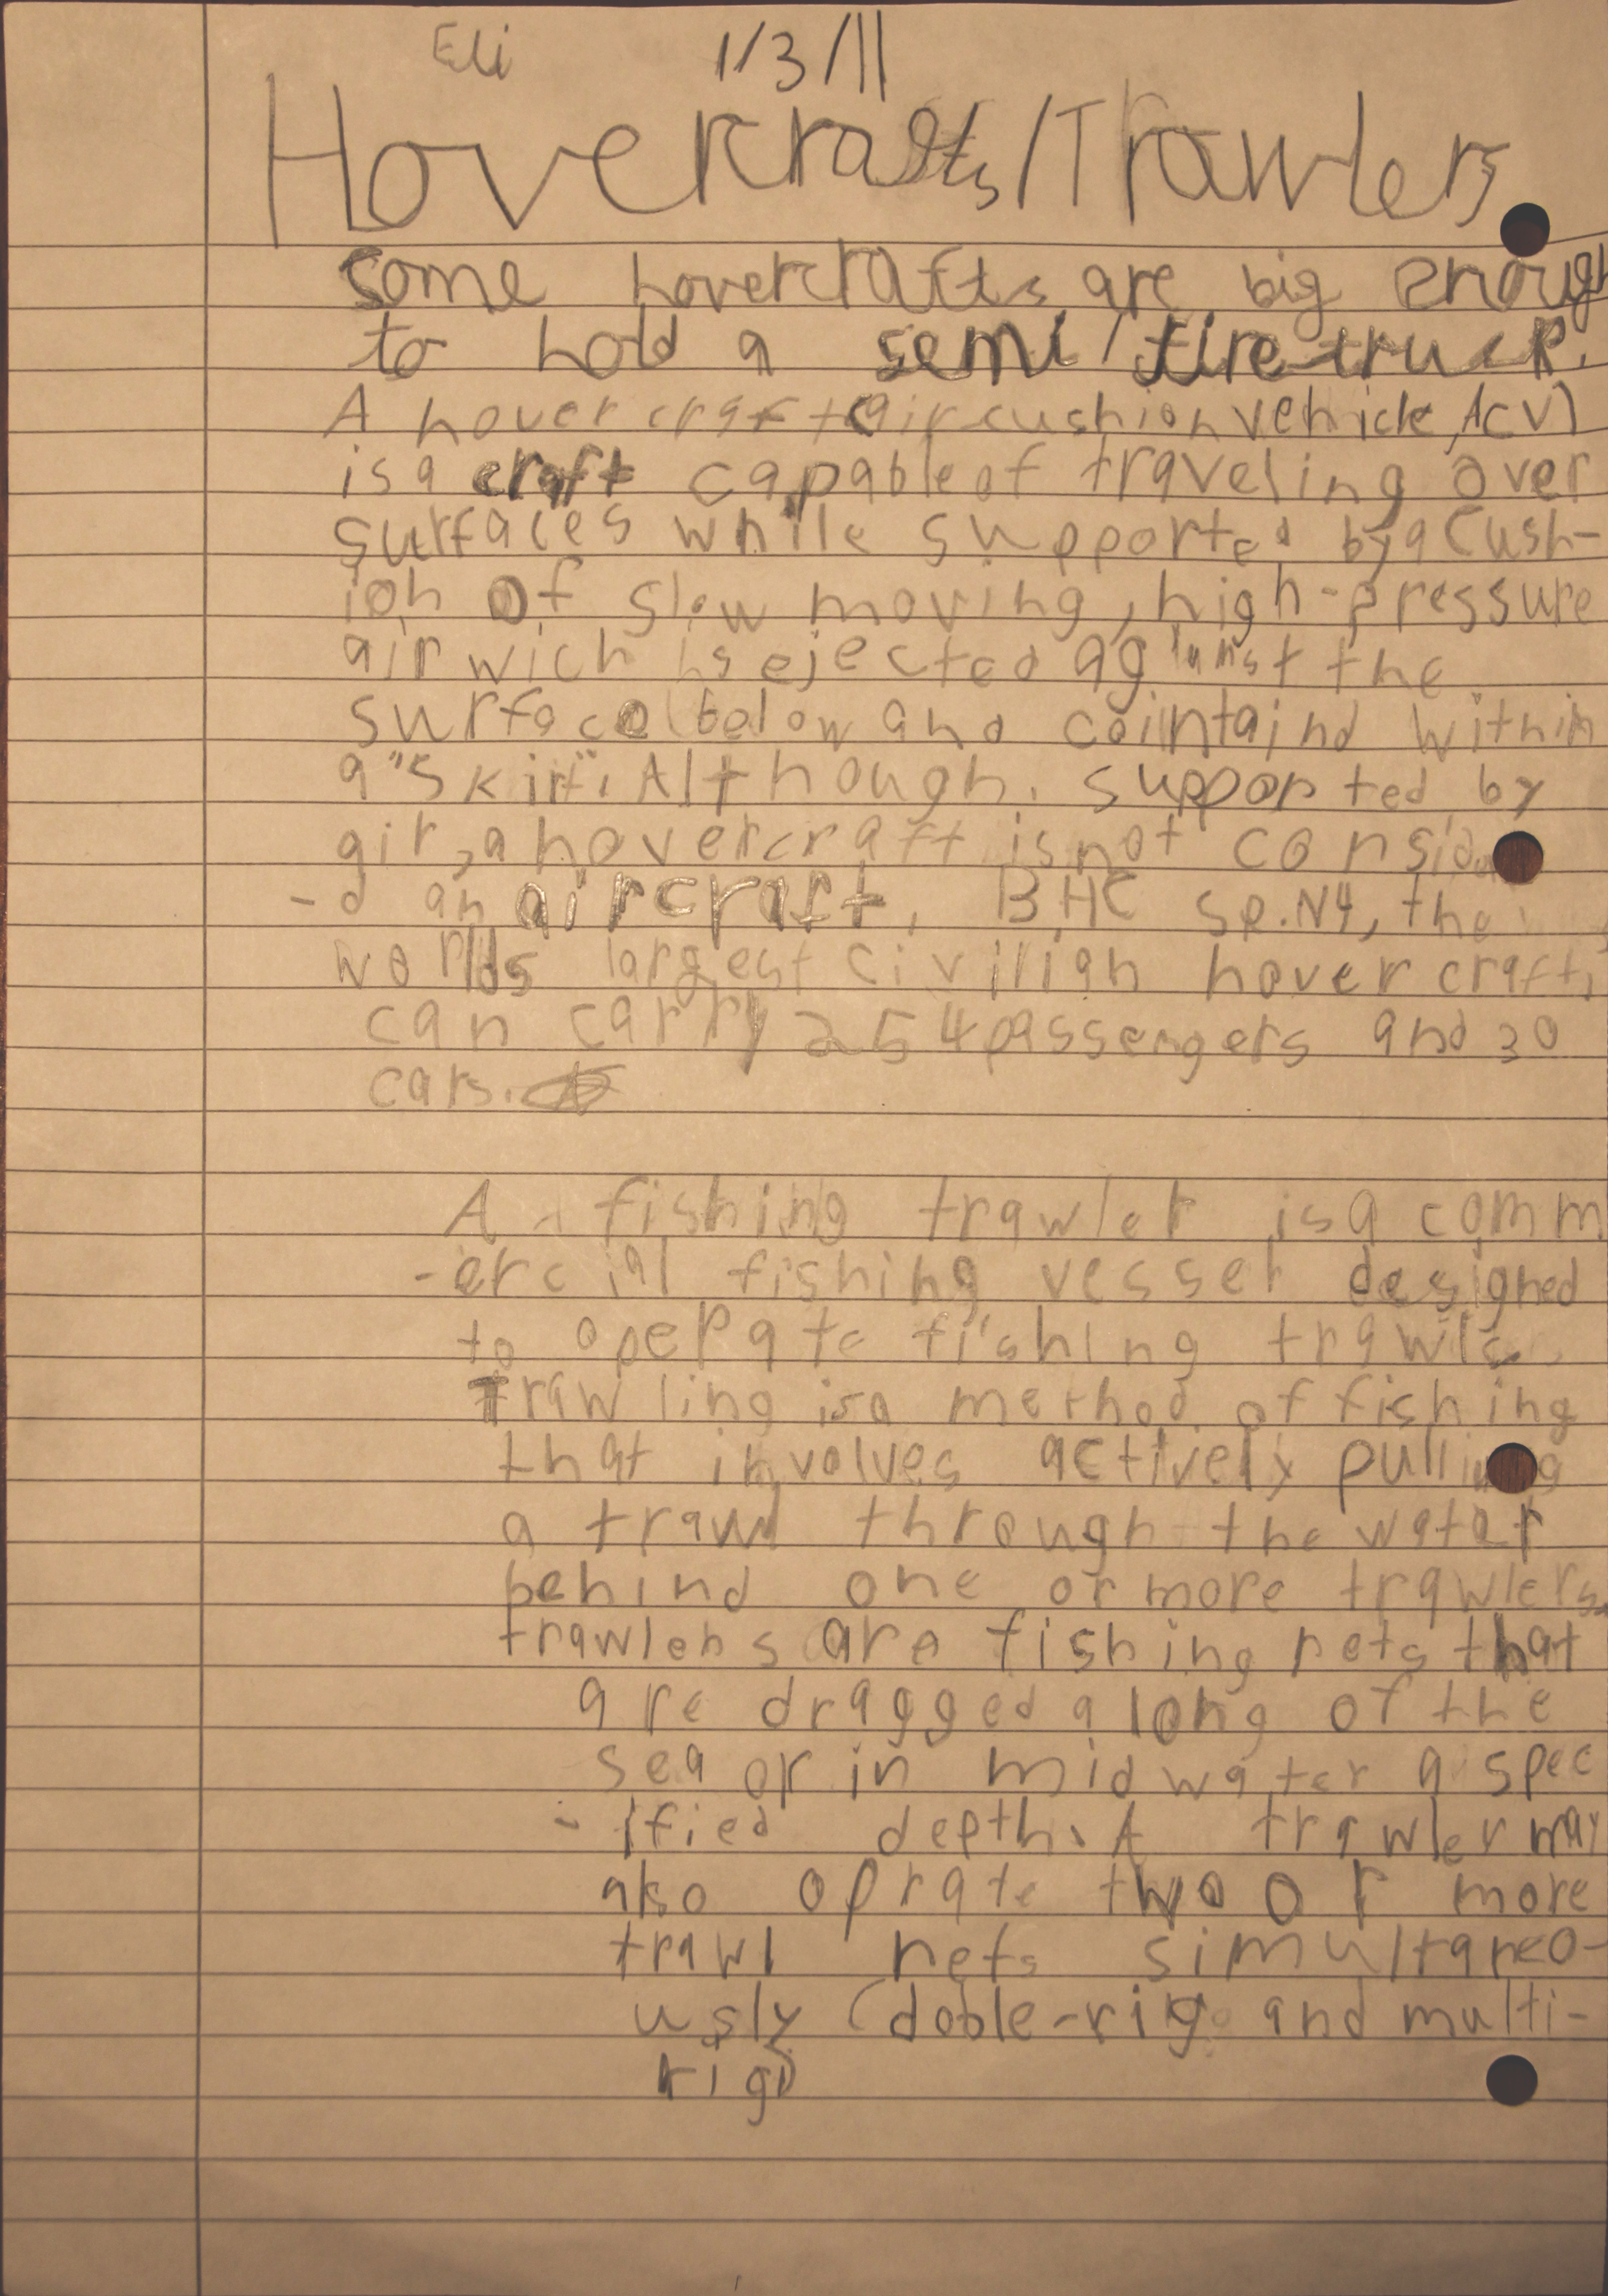 Eli 1/3/11
Hovercrafts/Trawlers
some hovercrafts are big enough
to hold a semi/fire truck.
A hovercraft (air cushion vehicle, ACV)
is a craft capable of traveling over
surfaces while supported by a cush-
ion of slow moving, high-pressure
air wich is ejected against the
surface below and cointaind within
a "skirt". Although supported by
air, a hovercraft is not consider
-d an aircraft. BHC SR.N4, the
worlds largest civilian hovercraft,
can carry 254 passengers and 30
cars.
A fishing trawler is a comm
-ercial fishing vessel designed
to operate fishing trawls.
Trawling is a method of fishing
that involves actively pulling
a trawl through the water
behind one or more trawlers.
trawlers are fishing nets that
are dragged along of the
sea or in midwater a spec
-ified depth. A trawler may
also oprate two or more
trawl nets simultaneo-
usly (doble-rig and multi-
rig)